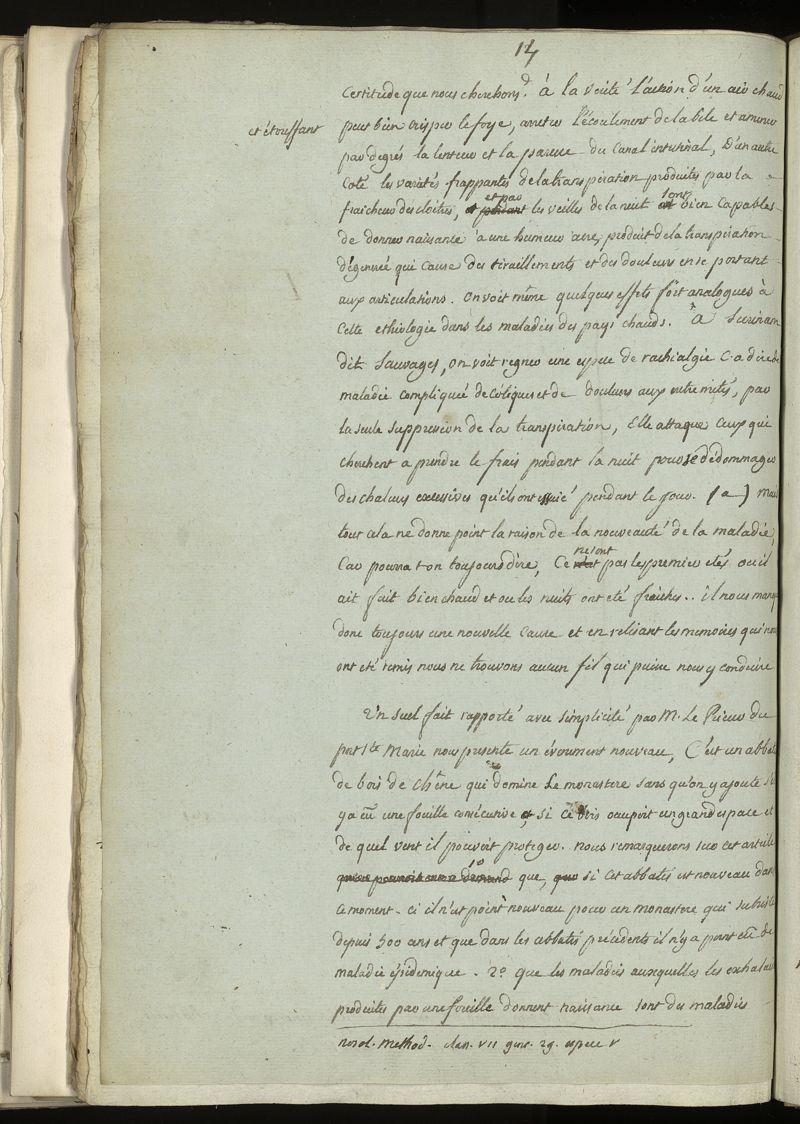 14
certitude que nous cherchons. à la verité l'action d'un air chaud
et étouffant
peut bien crisper le foye, arreter l'écoulement de la bile et amener
par degrés la lenteur et la paresse du canal intestinal, D'un autre
coté les varietés frappantes de la transpiration produites par la
fraicheur des cloitres, et par les veilles de la nuit sont bien capables
de donner naissance a une humeur acre, produit de la transpiration
dégenerée qui cause des tiraillements et des douleurs en se portant
aux articulations. On voit même quelques effets fort analogues à
cette ethiologie dans les maladies des pays chauds. A Surinam
dit Sauvages, on voit regner une espece de rachialgie c. a dire de
maladie compliquée de coliques et de douleurs aux extremités, par
la seule suppression de la transpiration, Elle attaque ceux qui
cherchent a prendre le frais pendant la nuit pour se dédommager
des chaleurs excessives qu'ils ont essuié pendant le jour. (a) mais
tout cela ne donne point la raison de la nouveauté de la maladie,
Car pourra t on toujours dire, Ce ne sont pas les premiers etés ou il
ait fait bien chaud et ou les nuits ont eté fraiches.. il nous manque
donc toujours une nouvelle cause et en relisant les memoires qui nous
ont eté remis nous ne trouvons aucun fil qui puisse nous y conduire
Un seul fait rapporté avec simplicité par M. Le Prieur du
port Ste Marie nous presente un évenement nouveau, C'est un abbatis
de bois de chêne qui domine le monastere sans qu'on y ajoute s'il
y a eû une fouille consécutive et si ce bois occupoit un grand espace et
de quel vent il pouvoit proteger. nous remarquerons sur cet article
1o que, si cet abbatis est nouveau dans
ce moment-ci il n'est point nouveau pour un monastere qui subsiste
depuis 500 ans et que dans les abbatis précedents il n'y a point eû de
maladie épidemique. 2o que les maladies auxquelles les exhalaisons
produites par une fouille donnent naissance sont des maladies
nosol. method. class. VII genr. 29. espece V